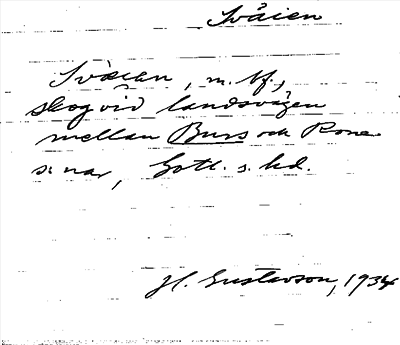 Svåien
Svåien, m. bf.,
skog vid landsvägen
mellan Burs och Rone
s:nar, Gotl. s. hd.
H. Gustavson, 1934